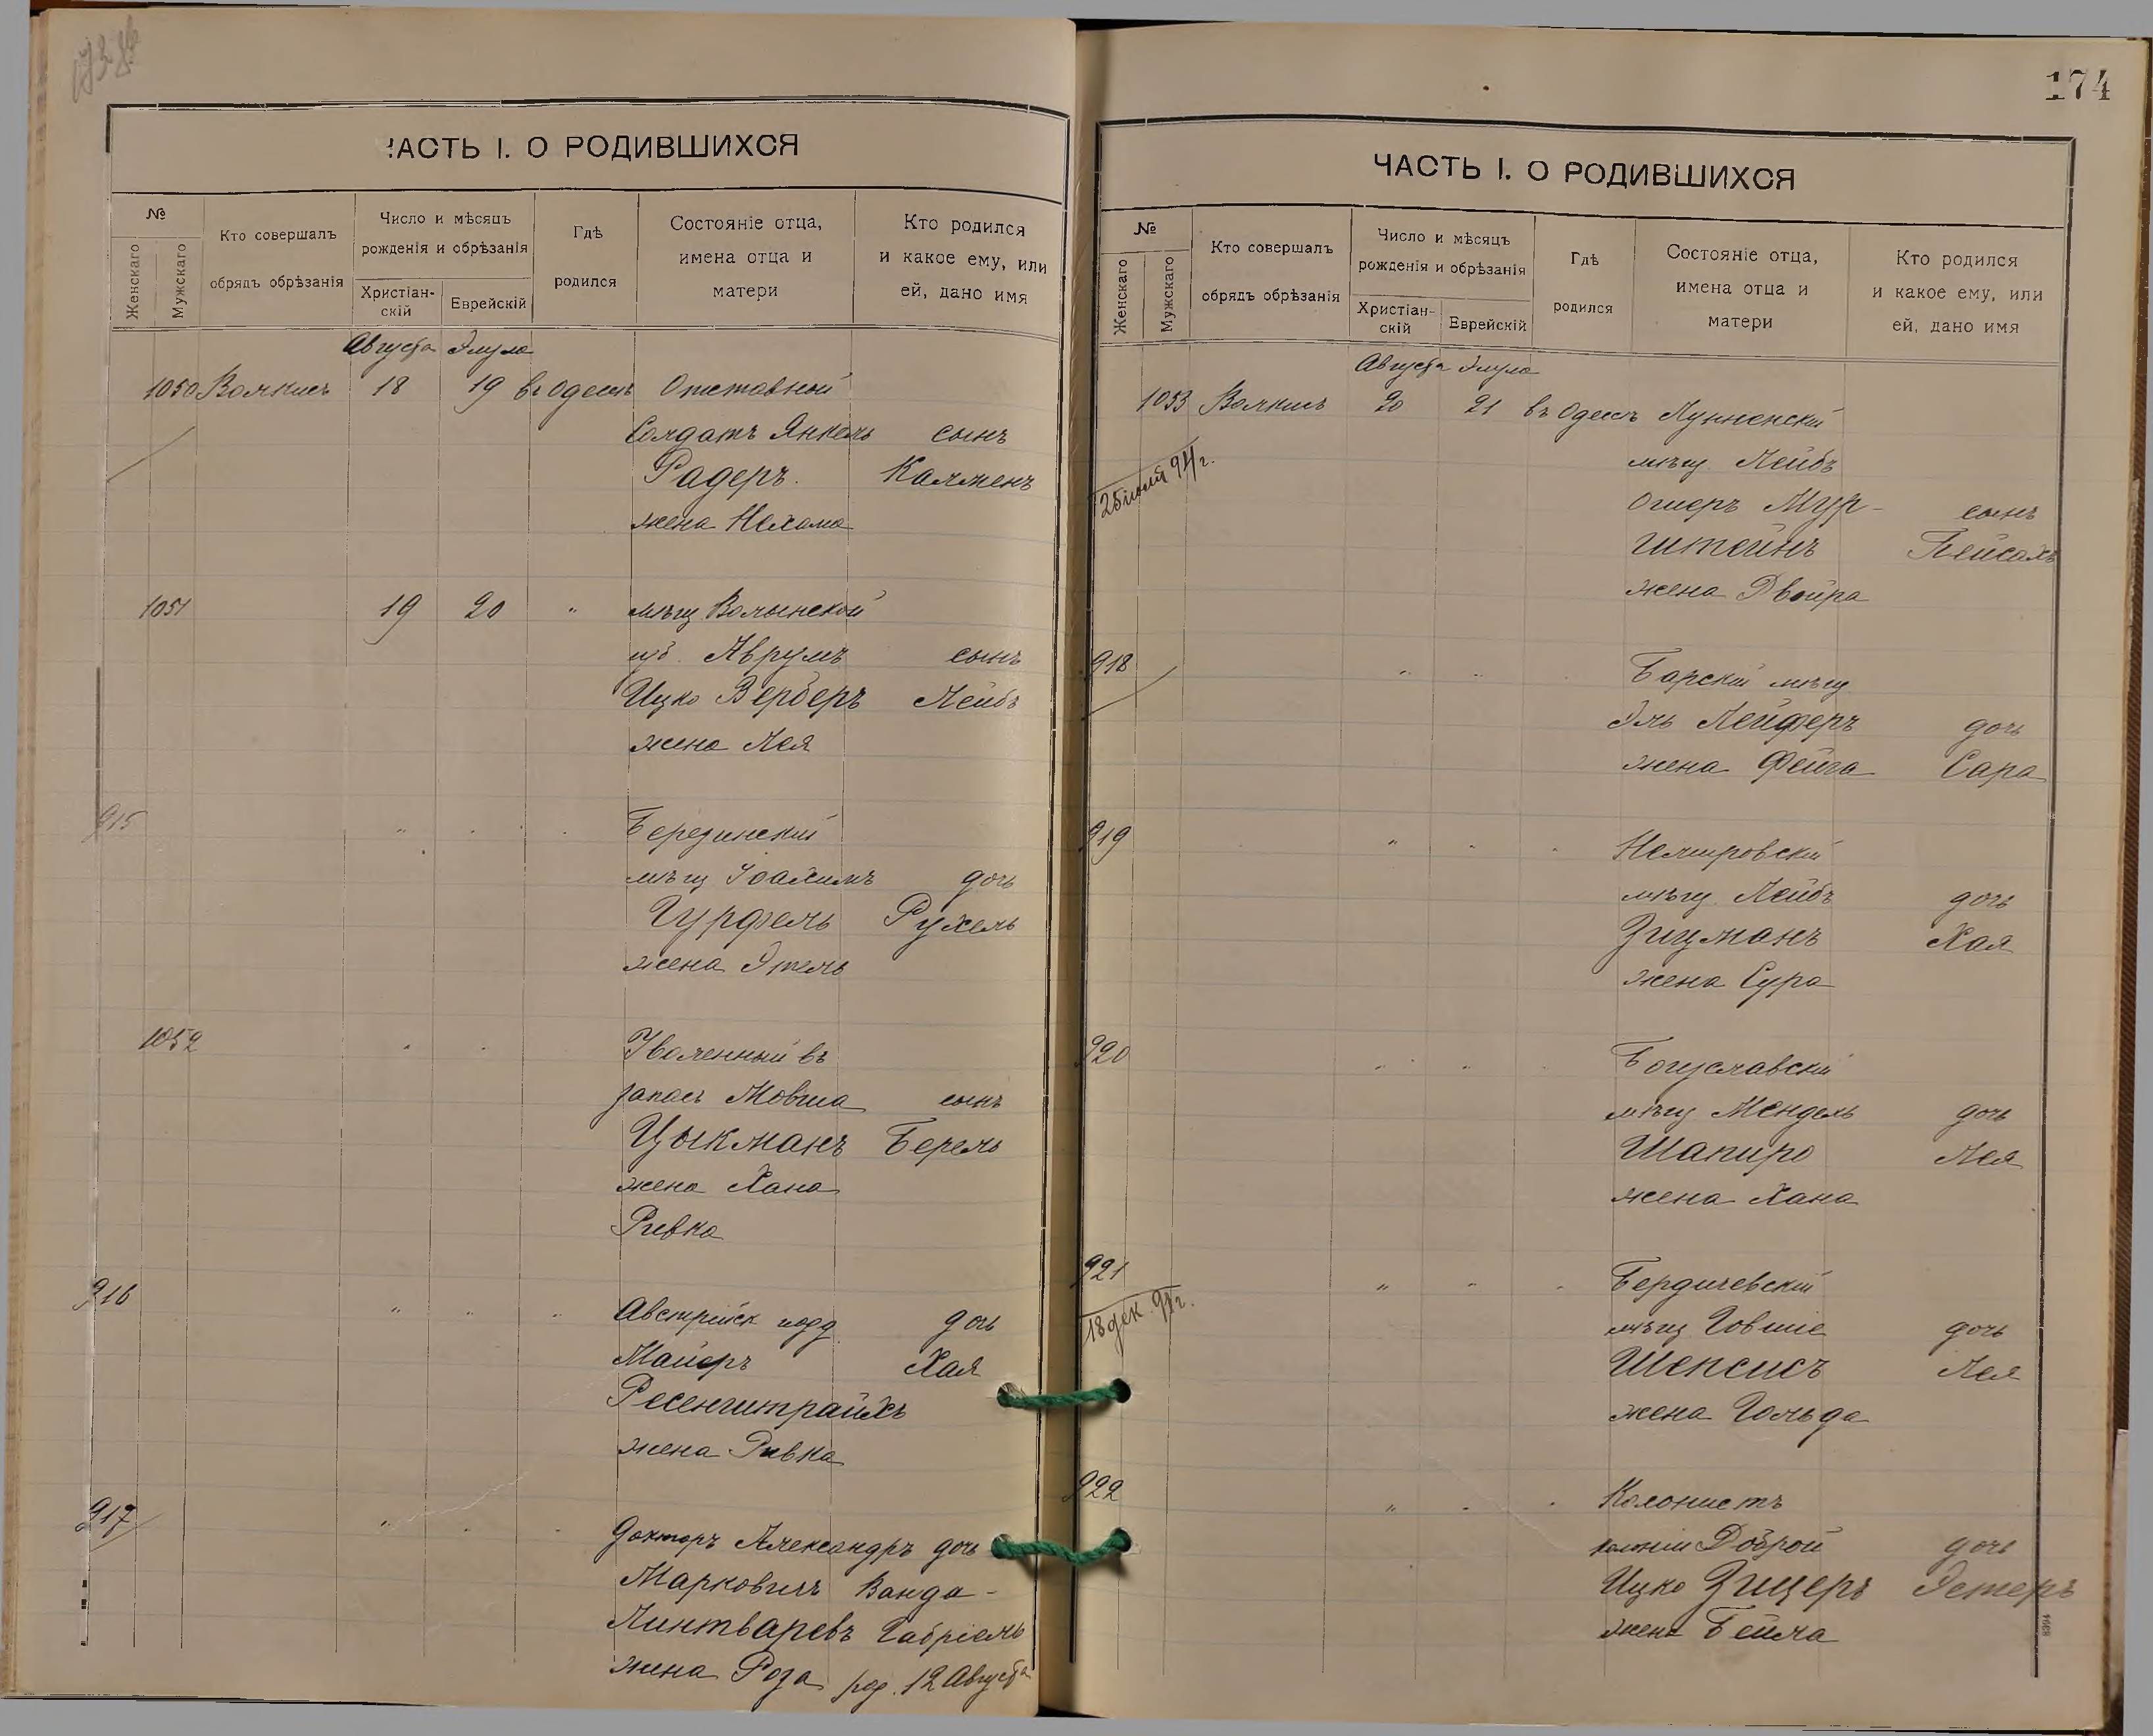 ЧАСТЬ I. О РОДИВШИХСЯ
№
Женскаго
Мужскаго
Кто совершалъ
обрядъ обрѣзанія
Число и мѣсяцъ
рожденія и обрѣзанія
Христіан-
скій
Еврейскій
Гдѣ
родился
Состояніе отца,
имена отца и
матери
Кто родился
и какое ему, или
ей, дано имя
Августа Элула
1050 18 19 въ Одессѣ Отставной
Солдатъ Янкель сынъ
Радеръ Калменъ
жена Нехама
1051 19 20 " мѣщ Волынской
губ. Аврумъ сынъ
Ицко Верберъ Лейбъ
жена Лея
915 " " " Березинскій
мѣщ Іоахимъ дочь
Гурфель Рухель
жена Этель
1052 " " Уволенный въ
запасъ Мовша сынъ
Цыкманъ Берель
жена Хана
Ривка
916 " " " Австрійск подд. дочь
Майеръ Хая
Ресенштрайхъ
жена Ривка
917 " " " Докторъ Александръ дочь
Марковичъ Ванда-
Линтваревъ Габріель
жена Роза род. 12 Августа
174
ЧАСТЬ I. О РОДИВШИХСЯ
№
Женскаго
Мужскаго
Кто совершалъ
обрядъ обрѣзанія
Число и мѣсяцъ
рожденія и обрѣзанія
Христіан-
скій
Еврейскій
Гдѣ
родился
Состояніе отца,
имена отца и
матери
Кто родился
и какое ему, или
ей, дано имя
Августа Элула
1053 20 21 въ Одессѣ
мѣщ. Лейбъ
25 іюля 94 г.
Ошеръ Мур- сынъ
штейнъ Пейсахъ
жена Двойра
918 " " " Барскій мѣщ
Эль Лейферъ дочь
жена Фейга Сара
919 " " " Немировскій
мѣщ. Лейбъ дочь
Зицманъ Хая
жена Сура
920 " " " Богуславскій
мѣщ Мендель дочь
Шапиро Лея
жена Хана
921 " " " Бердичевскій
мѣщ Говшіе дочь
Шепсисъ Лея
жена Гольда
922 " " " Колонистъ
колоніи Доброй дочь
Ицко Зицеръ Эстеръ
жена Бейла